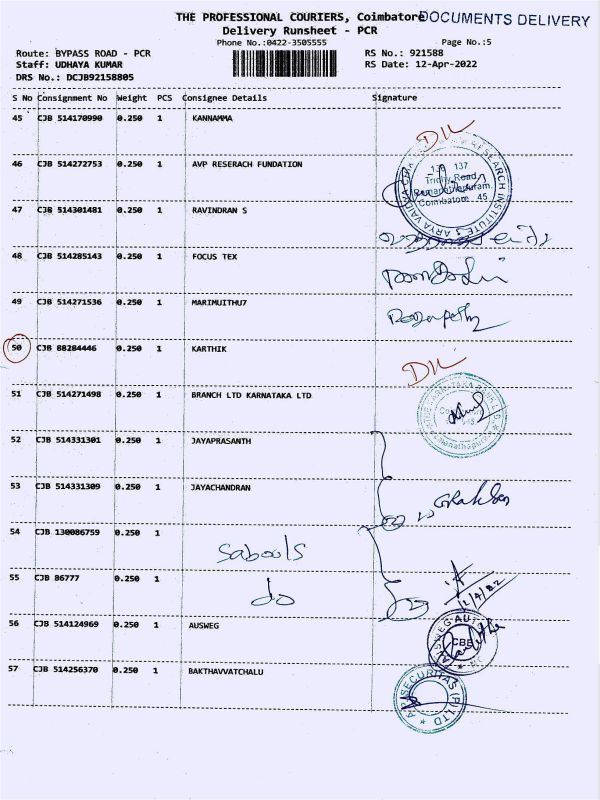 THE PROFESSIONAL COURIERS, Coimbatore
DOCUMENTS DELIVERY
Delivery Runsheet - PCR
Phone No.:0422-3505555
Page No.:5
Route: BYPASS ROAD - PCR
RS No.: 921588
Staff: UDHAYA KUMAR
RS Date: 12-Apr-2022
DRS No.: DCJB92158805
S No Consignment No Weight PCS Consignee Details Signature
45 CJB 514170990 0.250 1 KANNAMMA
46 CJB 514272753 0.250 1 AVP RESERACH FUNDATION
136 137
Trichy Road
Ramanathapuram
Coimbatore 45
47 CJB 514301481 0.250 1 RAVINDRAN S
48 CJB 514285143 0.250 1 FOCUS TEX
49 CJB 514271536 0.250 1 MARIMUITHU7
50 CJB 88284446 0.250 1 KARTHIK
51 CJB 514271498 0.250 1 BRANCH LTD KARNATAKA LTD
52 CJB 514331301 0.250 1 JAYAPRASANTH
53 CJB 514331309 0.250 1 JAYACHANDRAN
54 CJB 130086759 0.250 1 sabools
55 CJB 86777 0.250 1 do
56 CJB 514124969 0.250 1 AUSWEG
CBE
57 CJB 514256370 0.250 1 BAKTHAVVATCHALU